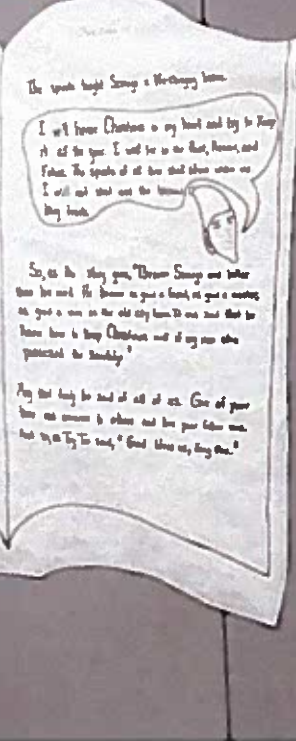 The spirits taught Scrooge a life-changing lesson.
I will honor Christmas in my heart and try to keep
it all the year. I will live in the Past, Present, and
Future. The spirits of all three shall strive within me.
I will not shut out the lessons
they teach.
So, as the story goes, "Scrooge and better
than his word. He became as good a friend, as good a master,
as good a man as the old city knew. It was said that he
knew how to keep Christmas well if any man alive
possessed the knowledge."
May that truly be said of all of us. Give of your
time and to others and
And as Tiny Tim said, "God bless us, Every One."